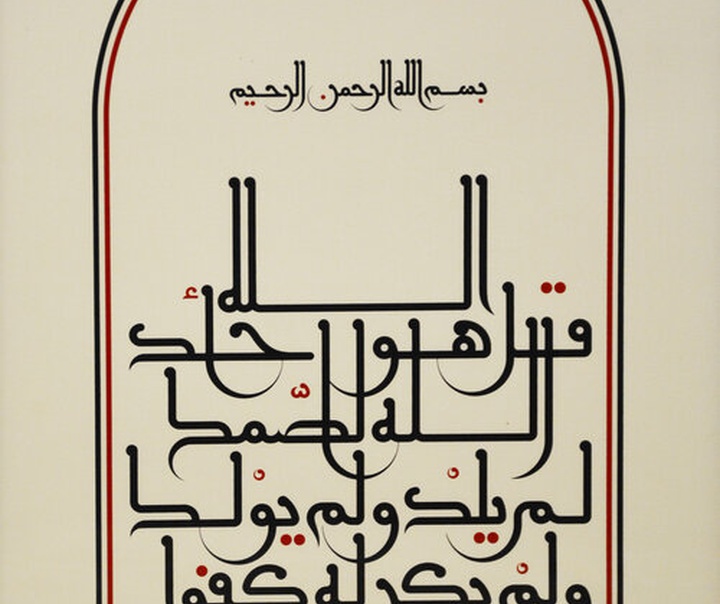 بسم الله الرحمن الرحيم
قل هو الله أحد
الله الصّمد
لم يلد ولم يولد
ولم يكن له كفوا